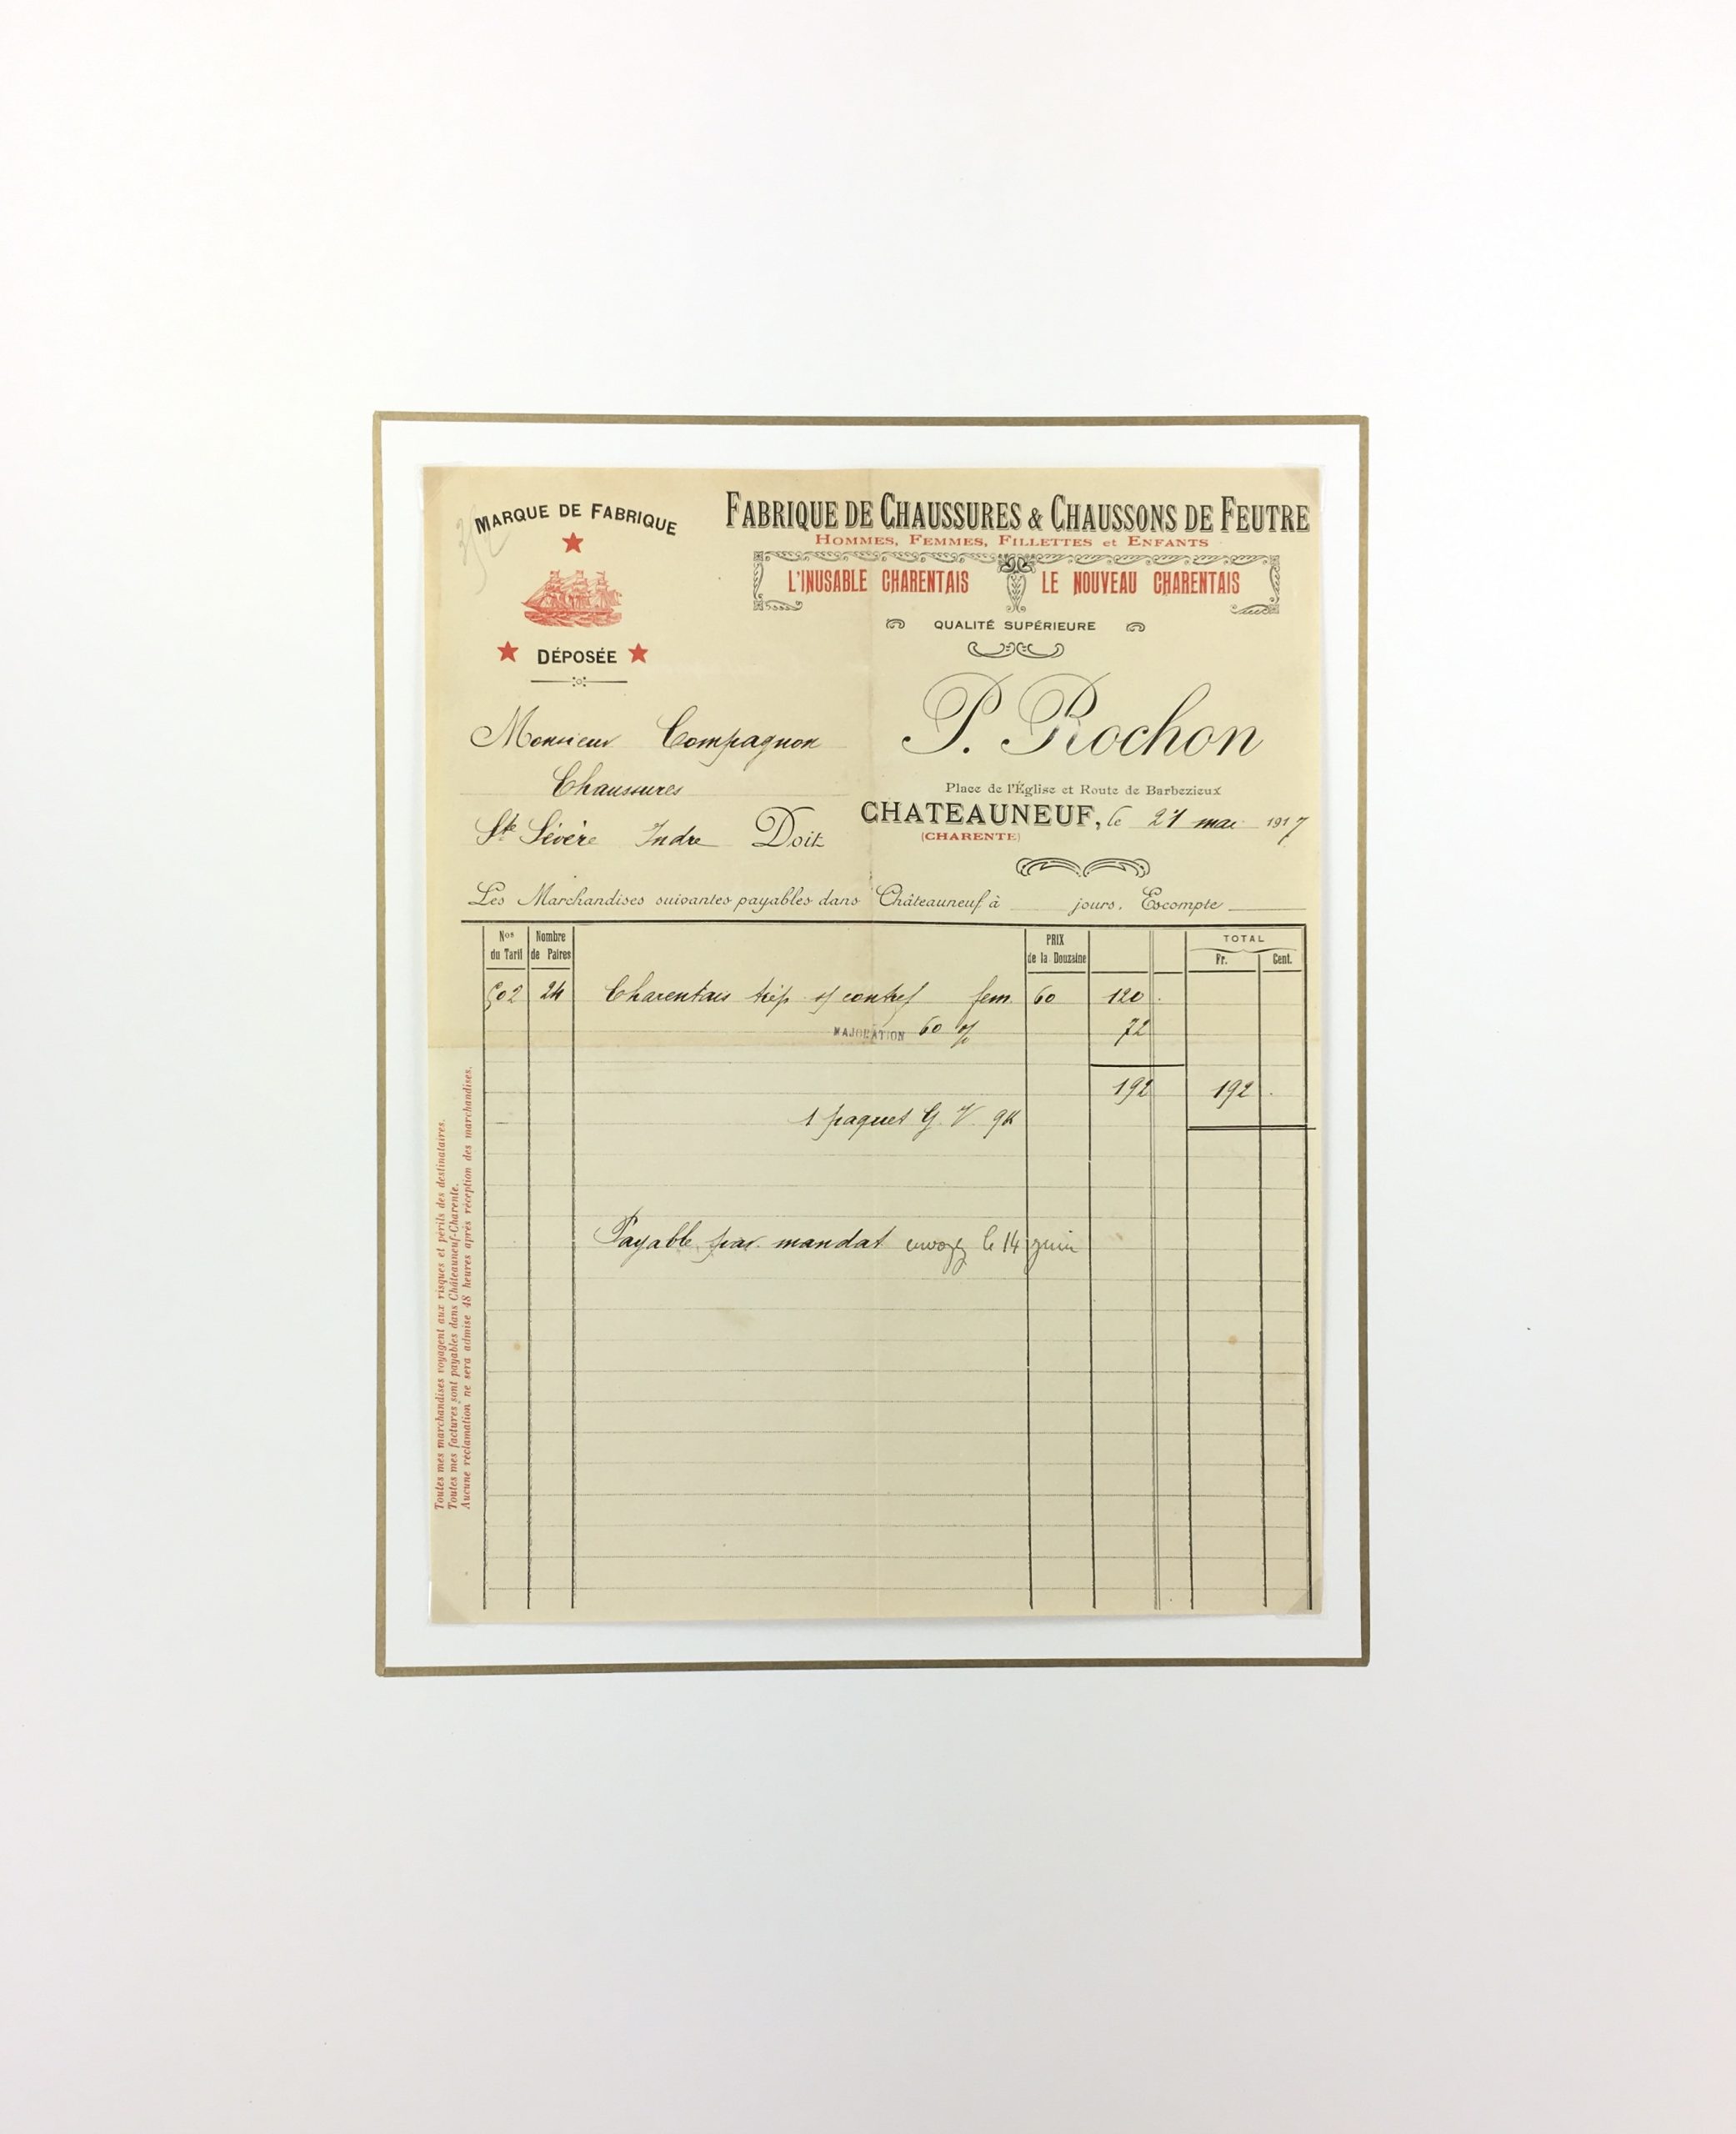 MARQUE DE FABRIQUE
DÉPOSÉE
FABRIQUE DE CHAUSSURES & CHAUSSONS DE FEUTRE
HOMMES, FEMMES, FILLETTES et ENFANTS
L'INUSABLE CHARENTAIS LE NOUVEAU CHARENTAIS
QUALITÉ SUPÉRIEURE
P. Rochon
Place de l'Église et Route de Barbezieux
CHATEAUNEUF, le 21 mai 1917
(CHARENTE)
Monsieur Compagnon
Chaussures
Ste Sévère Indre Doit
Les Marchandises suivantes payables dans Châteauneuf à jours. Escompte
Nos du Tarif Nombre de Paires PRIX de la Douzaine TOTAL Fr. Cent.
502 24 Charentais trép s/ contref fem. 60 120
MAJORATION 60 % 72
192 192
1 paquet G. V. 9K
Payable par mandat envoyé le 14 juin
Toutes mes marchandises voyagent aux risques et périls des destinataires.
Toutes mes factures sont payables dans Châteauneuf-Charente.
Aucune réclamation ne sera admise 48 heures après réception des marchandises.